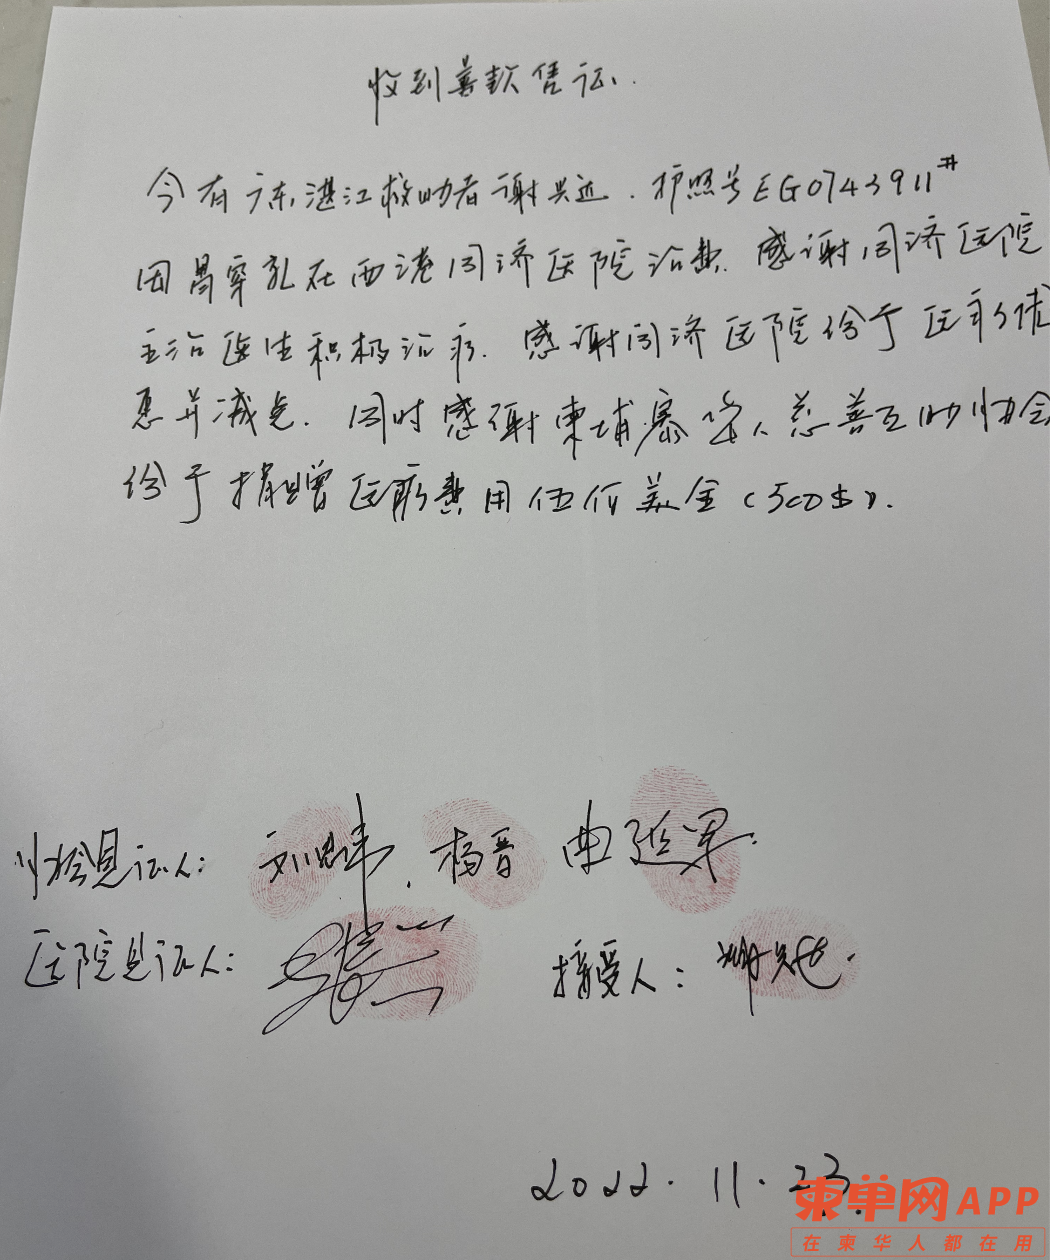 收到善款凭证.
今有广东湛江救助者谢兴述.护照号EG0743911#
因胃穿孔在西港同济医院治愈.感谢同济医院
主治医生积极治疗.感谢同济医院给于医疗优
惠并减免.同时感谢柬埔寨华人慈善互助协会
给于捐赠医疗费用伍佰美金(500$).
协会见证人: 杨晋 曲延军.
医院见证人:
接受人:
2022.11.23.
柬单网APP
在柬华人都在用